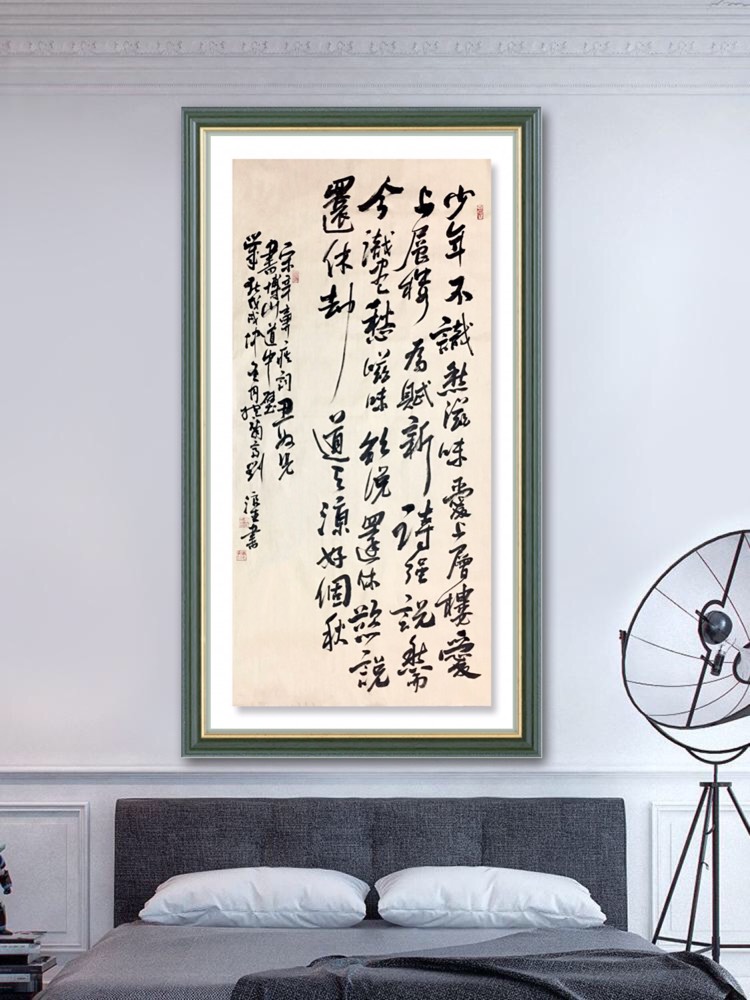 少年不識愁滋味愛上層樓愛
上層樓為賦新詩強說愁而
今識盡愁滋味欲說還休欲說
還休却道天涼好個秋
宋辛棄疾詞丑奴兒
書博山道中壁
戊戌仲冬月 劉 書